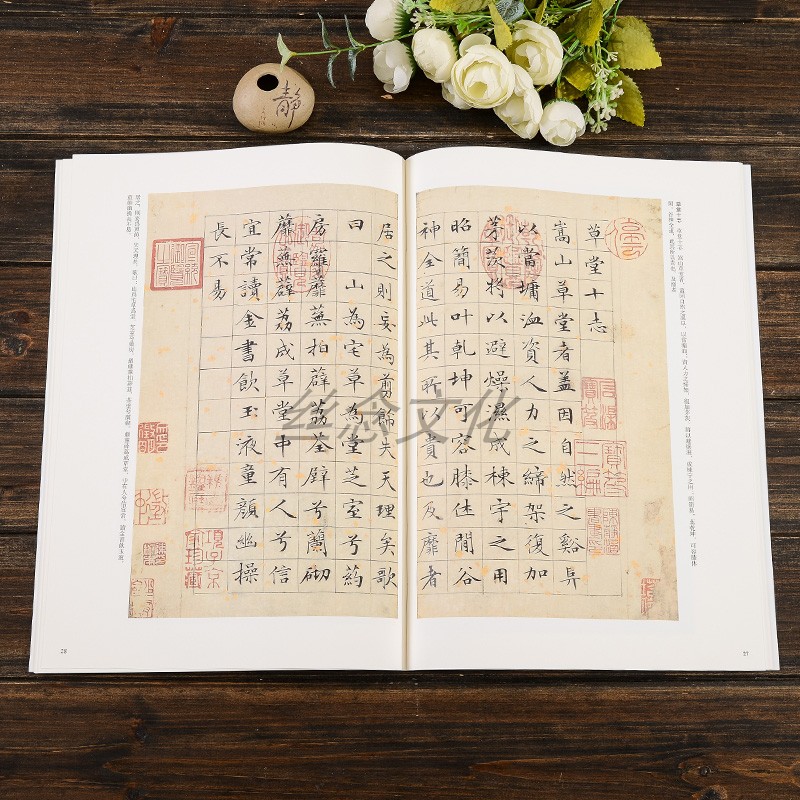 靜
草堂十志
嵩山草堂者蓋因自然之谿阜
以當墉洫資人力之締架復加
茅茨將以避燥濕成棟宇之用
昭簡易叶乾坤可容膝休閒谷
神全道此其所以貴也及靡者
居之則妄為剪飾失天理矣歌
曰 山為宅草為堂芝室兮葯
房羅蘼蕪拍薜荔荃壁兮蘭砌
蘼蕪薜荔成草堂中有人兮信
宜常讀金書飲玉液童顏幽操
長不易
丝念文化
28
27